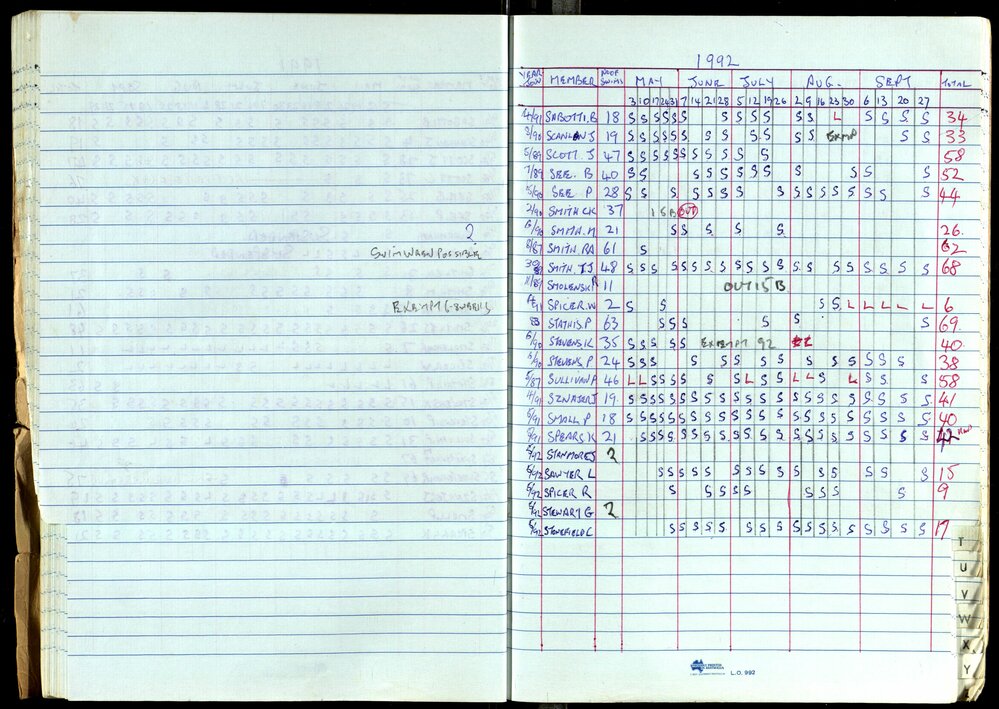 2
SWIM WHEN POSSIBLE
EXEMPT 6-8 WEEKS
1992
YEAR JOIN MEMBER NO OF SWIMS MAY JUNE JULY AUG. SEPT TOTAL
3 10 17 24 31 7 14 21 28 5 12 19 26 2 9 16 23 30 6 13 20 27
4/91 SABOTTI. B 18 S S S S S S S S S S S S S L S S S S 34
3/90 SCANLON J 19 S S S S S S S S S S S S EXMP S S 33
5/89 SCOTT. J 47 S S S S S S S S S S S 58
7/89 SEE. B 40 S S S S S S S S S S S S 52
5/90 SEE P 28 S S S S S S S S S S S S S S S S 44
2/90 SMITH CK 37 15 B OUT
6/90 SMITH. M 21 S S S S S 26.
8/87 SMITH. RA 61 S 62
SMITH. TJ 48 S S S S S S S S S S S S S S S S S S S S 68
11/89 SMOLENSKI R 11 OUT 15 B
SPICER. W 2 S S S S L L L L L 6
STATHIS. P 63 S S S S S S 69.
6/90 STEVENS. K 35 S S S S S EXEMPT 92 40
6/90 STEVENS. P 24 S S S S S S S S S S S S S S 38
5/87 SULLIVAN P 46 L L S S S S S S L S S L L S L S S S 58
4/91 SZNAJER J 19. S S S S S S S S S S S S S S S S S S S S S S 41
5/91 SMALL. P 18 S S S S S S S S S S S S S S S S S S S S S S 40
SPEARS. K 21 S S S S S S S S S S S S S S S S S S S S S 42
5/92 STANMORE J 2
5/92 SAWYER L S S S S S S S S S S S S S S S 15
5/92 SPICER R S S S S S S S S S 9
5/92 STEWART G 2
5/92 STONEFIELD C S S S S S S S S S S S S S S S S S 17
T
U
V
W
X
Y
L.O. 992